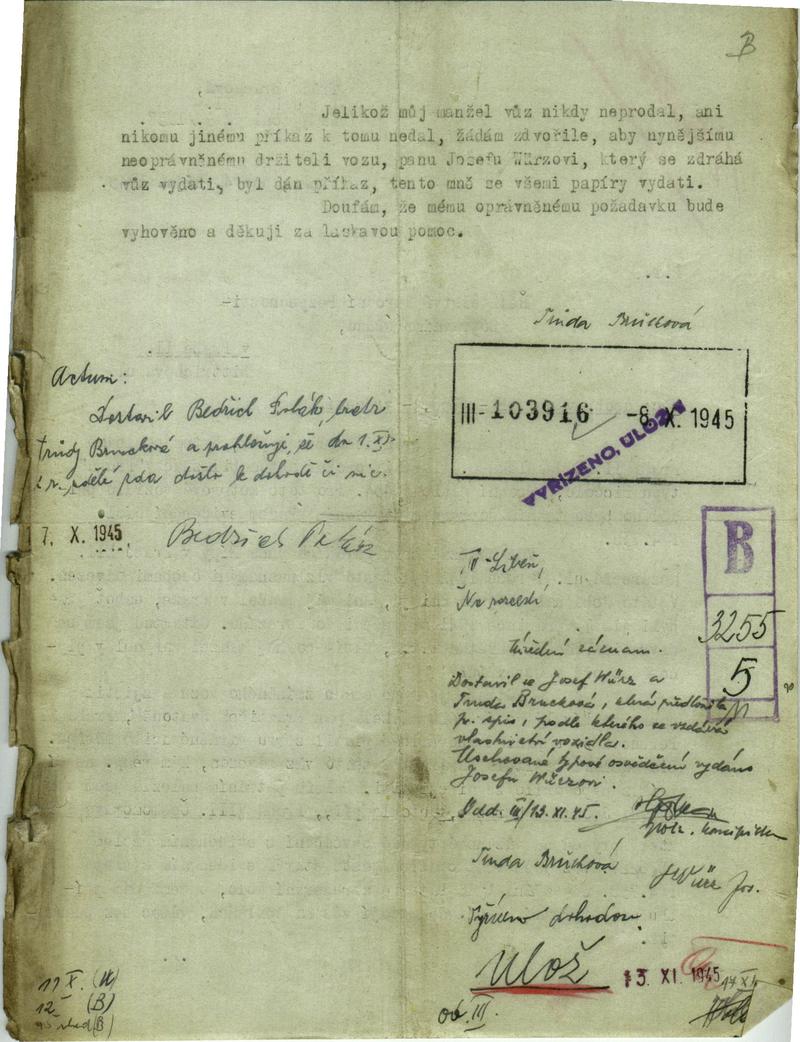 B
Jelikož můj manžel vůz nikdy neprodal, ani
nikomu jinému příkaz k tomu nedal, žádám zdvořile, aby nynějšímu
neoprávněnému držiteli vozu, panu Josefu Würzovi, který se zdráhá
vůz vydati, byl dán příkaz, tento mně se všemi papíry vydati.
Doufám, že mému oprávněnému požadavku bude
vyhověno a děkuji za laskavou pomoc.
Truda Brücková
III-103916 -8. X. 1945
VYŘÍZENO, ULOŽIT
Actum:
Dostavil Bedřich
Trudy Bruckové a prohlašuje, že do 1. XI.
došlo k dohodě či nic.
17. X. 1945.
Bedřich
B
3255
5
IV-Libeň,
Na
Úřední záznam.
Dostavil se Josef Würz a
Truda Brucková, která předložila
spis, podle kterého se vzdává
vlastnictví vozidla.
Uschované typové osvědčení vydáno
Josefu Würzovi.
Odd. III/13. XI. 45.
Truda Brücková
Würz Jos.
dohodou
Ulož
13. XI. 1945
17 XI.
od. III.
11 X.
12 (B)
(B)